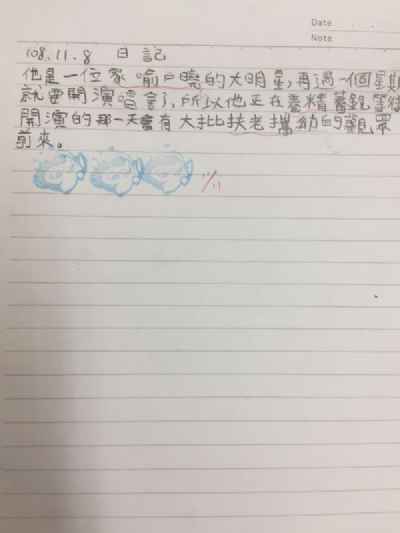 Date
Note
108.11.8 日記
他是一位家喻戶曉的大明星,再過一個星期
就要開演唱會了,所以他正在養精蓄銳等待
開演的那一天會有大批扶老攜幼的觀眾
前來。
11/11